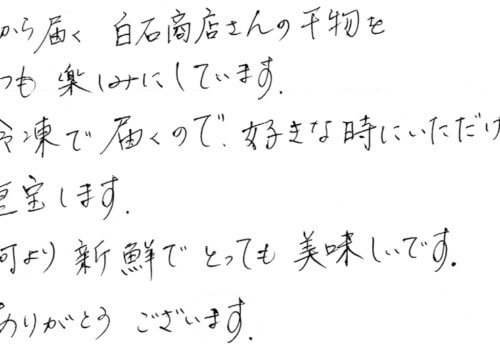 から届く 白石商店さんの干物を
つも 楽しみにしています.
冷凍で 届くので、好きな時にいただけ
重宝します.
何より 新鮮で とっても 美味しいです.
ありがとう ございます.